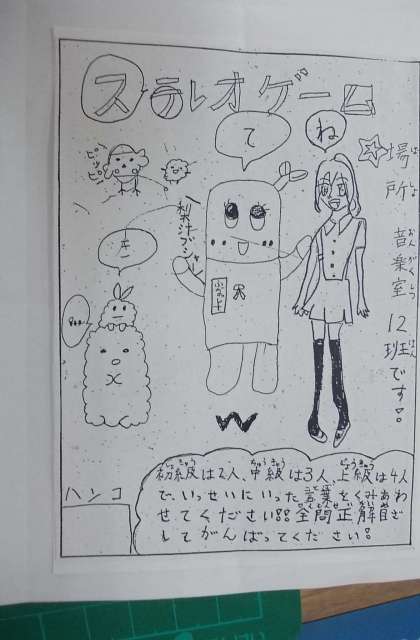 ステレオゲーム
て
ね
き
ピッピ
梨汁ブシャー
場所 音楽室 12班です!
ばしょ おんがくしつ はん
ハンコ
初級は2人、中級は3人、上級は4人
で、いっせいにいった言葉をくみあわ
せてください!!全問正解目ざ
してがんばってください!